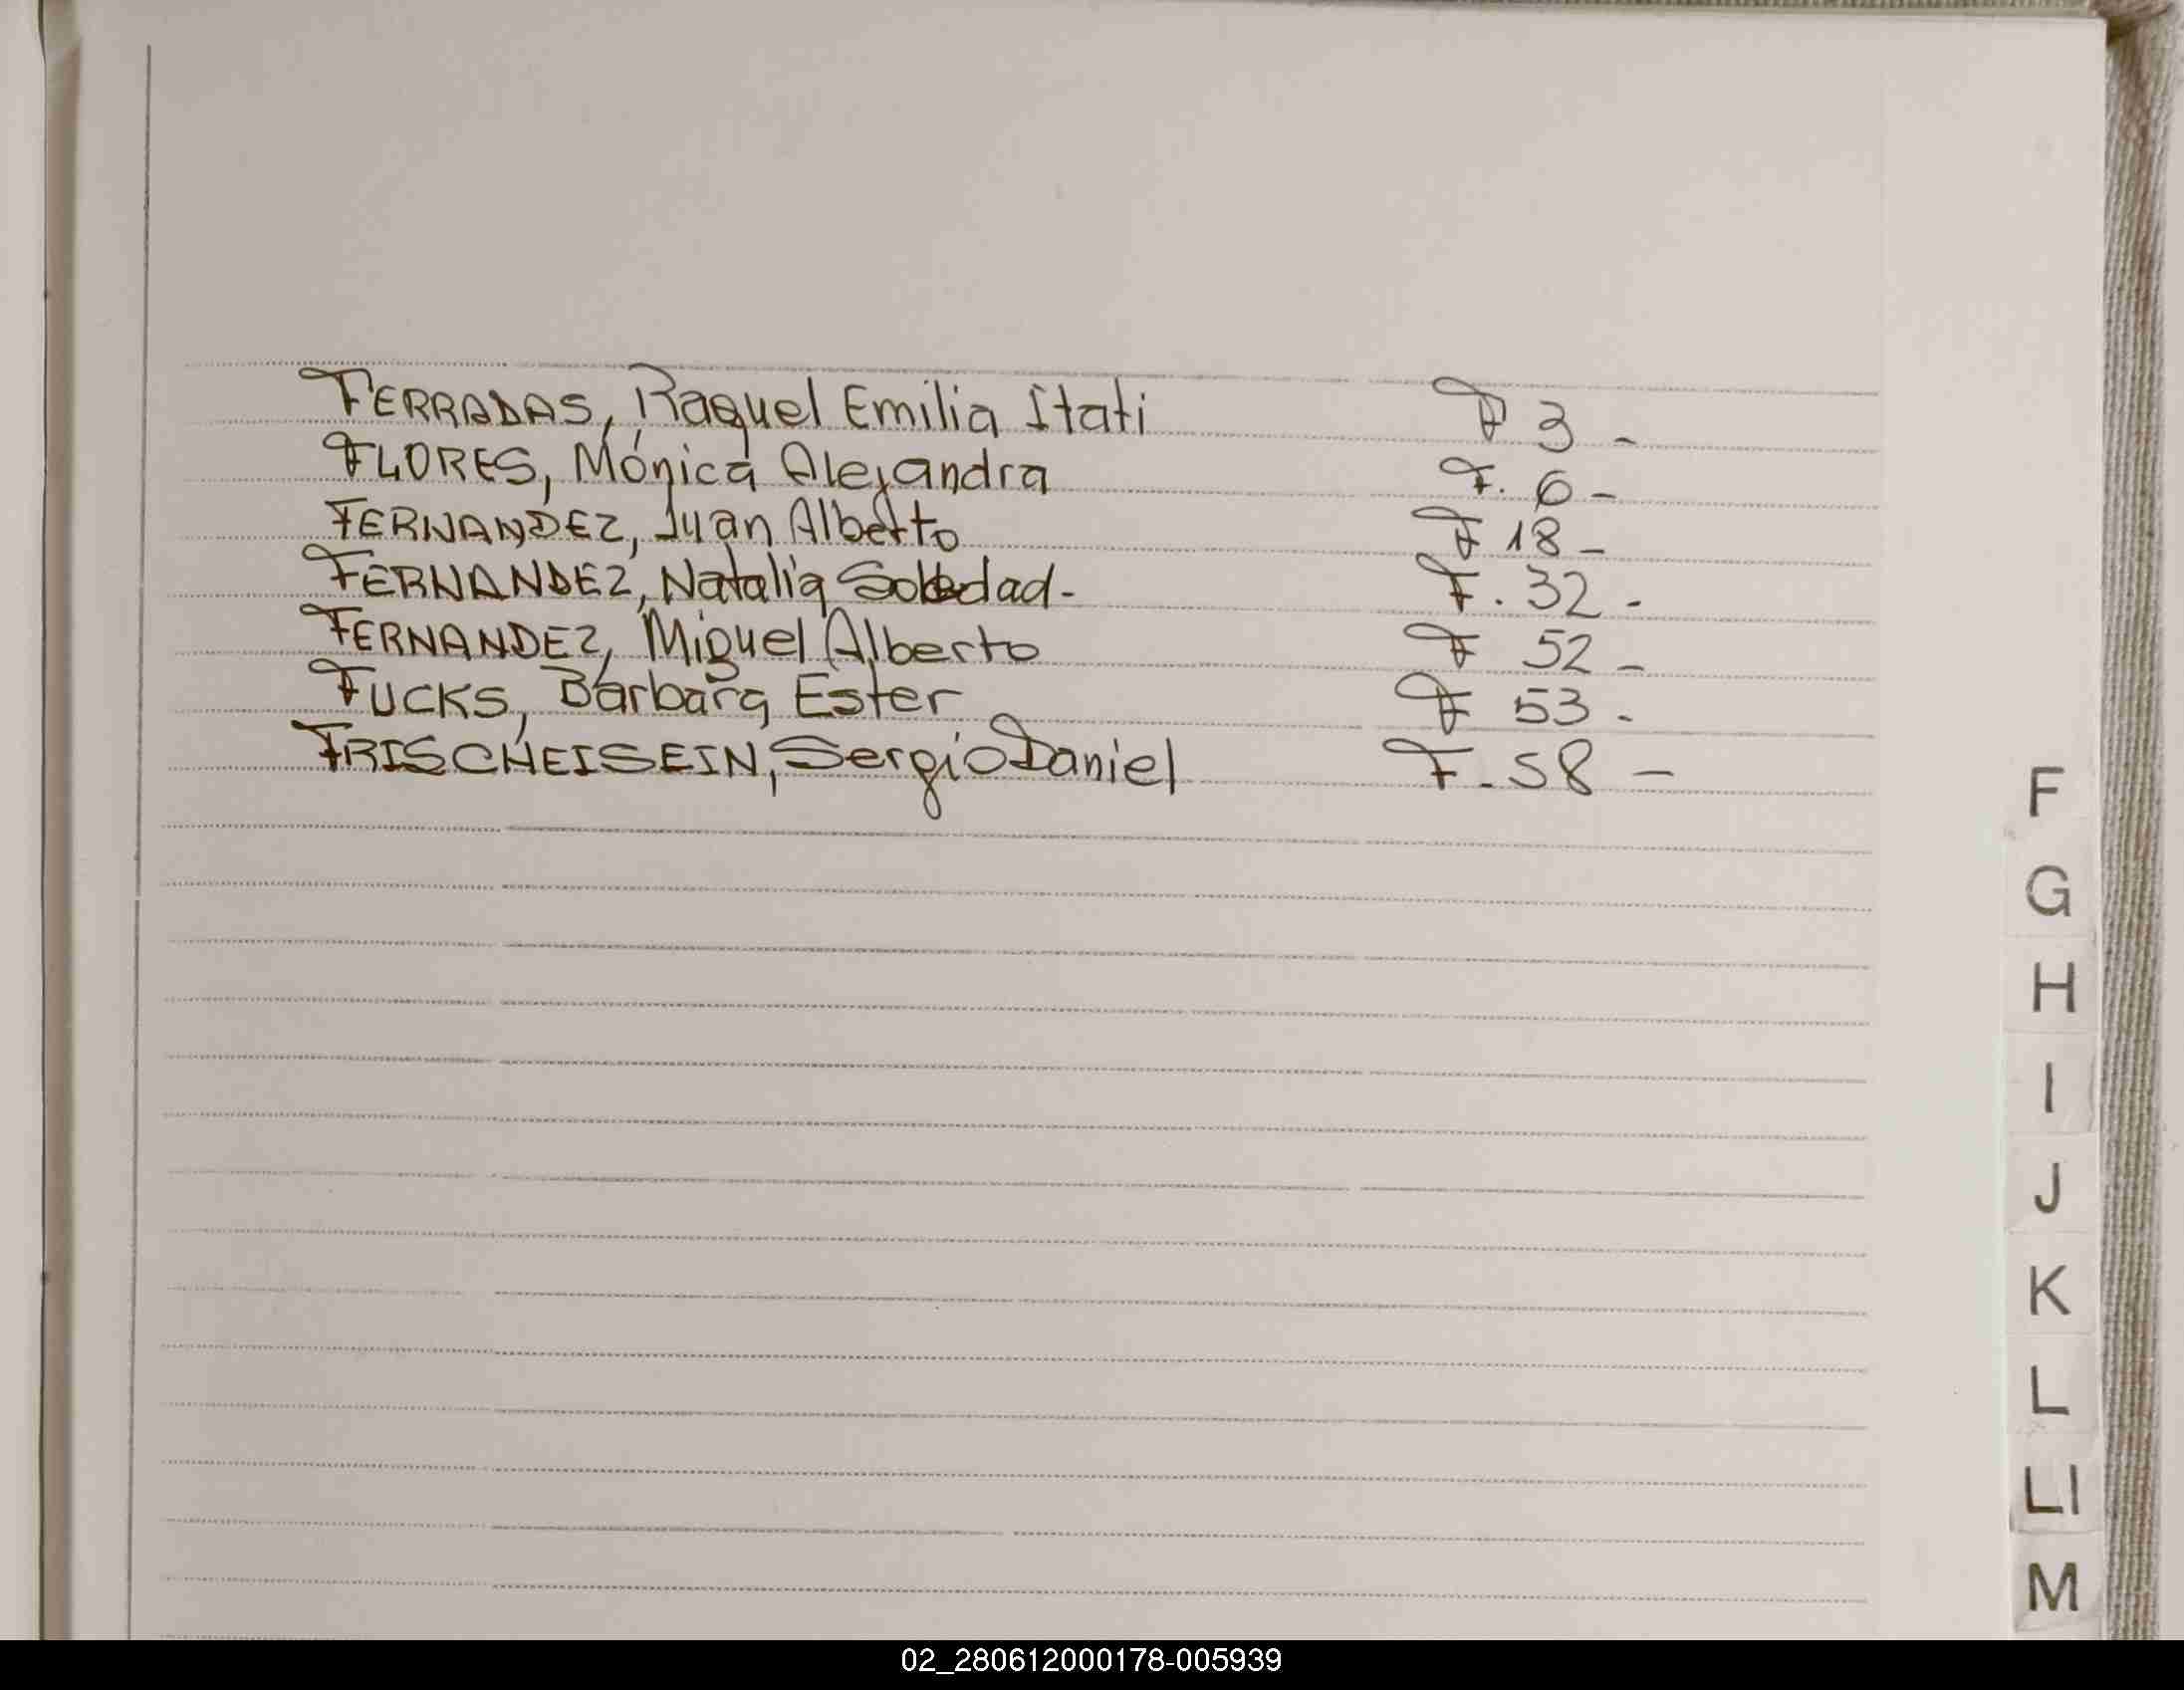 FERRADAS, Raquel Emilia Itati F 3 -
FLORES, Mónica Alejandra F. 6 -
FERNANDEZ, Juan Alberto F 18 -
FERNANDEZ, Natalia Soledad - F. 32 -
FERNANDEZ, Miguel Alberto F 52 -
FUCKS, Bárbara Ester F 53 -
FRISCHEISEIN, Sergio Daniel F. 58 -
F
G
H
I
J
K
L
Ll
M
02_280612000178-005939